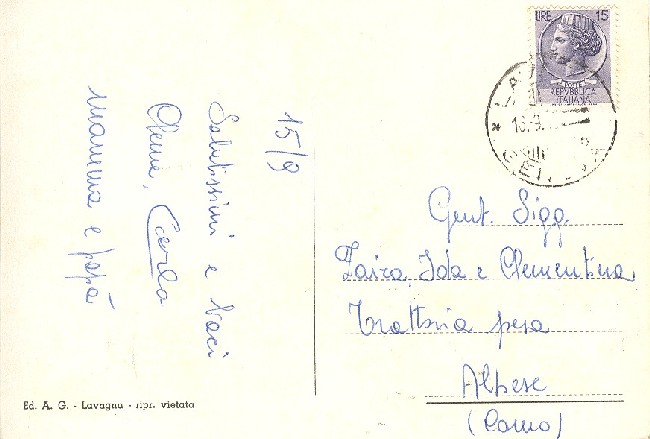 15/9
Salutissimi e baci
Clena, Carlo
mamma e papà
LIRE 15
REPVBBLICA
ITALIANA
Gent. Sigg.
Zaira, Ida e Clementina
Trattoria pesa
Albese
(Como)
Ed. A. G. - Lavagna - ripr. vietata